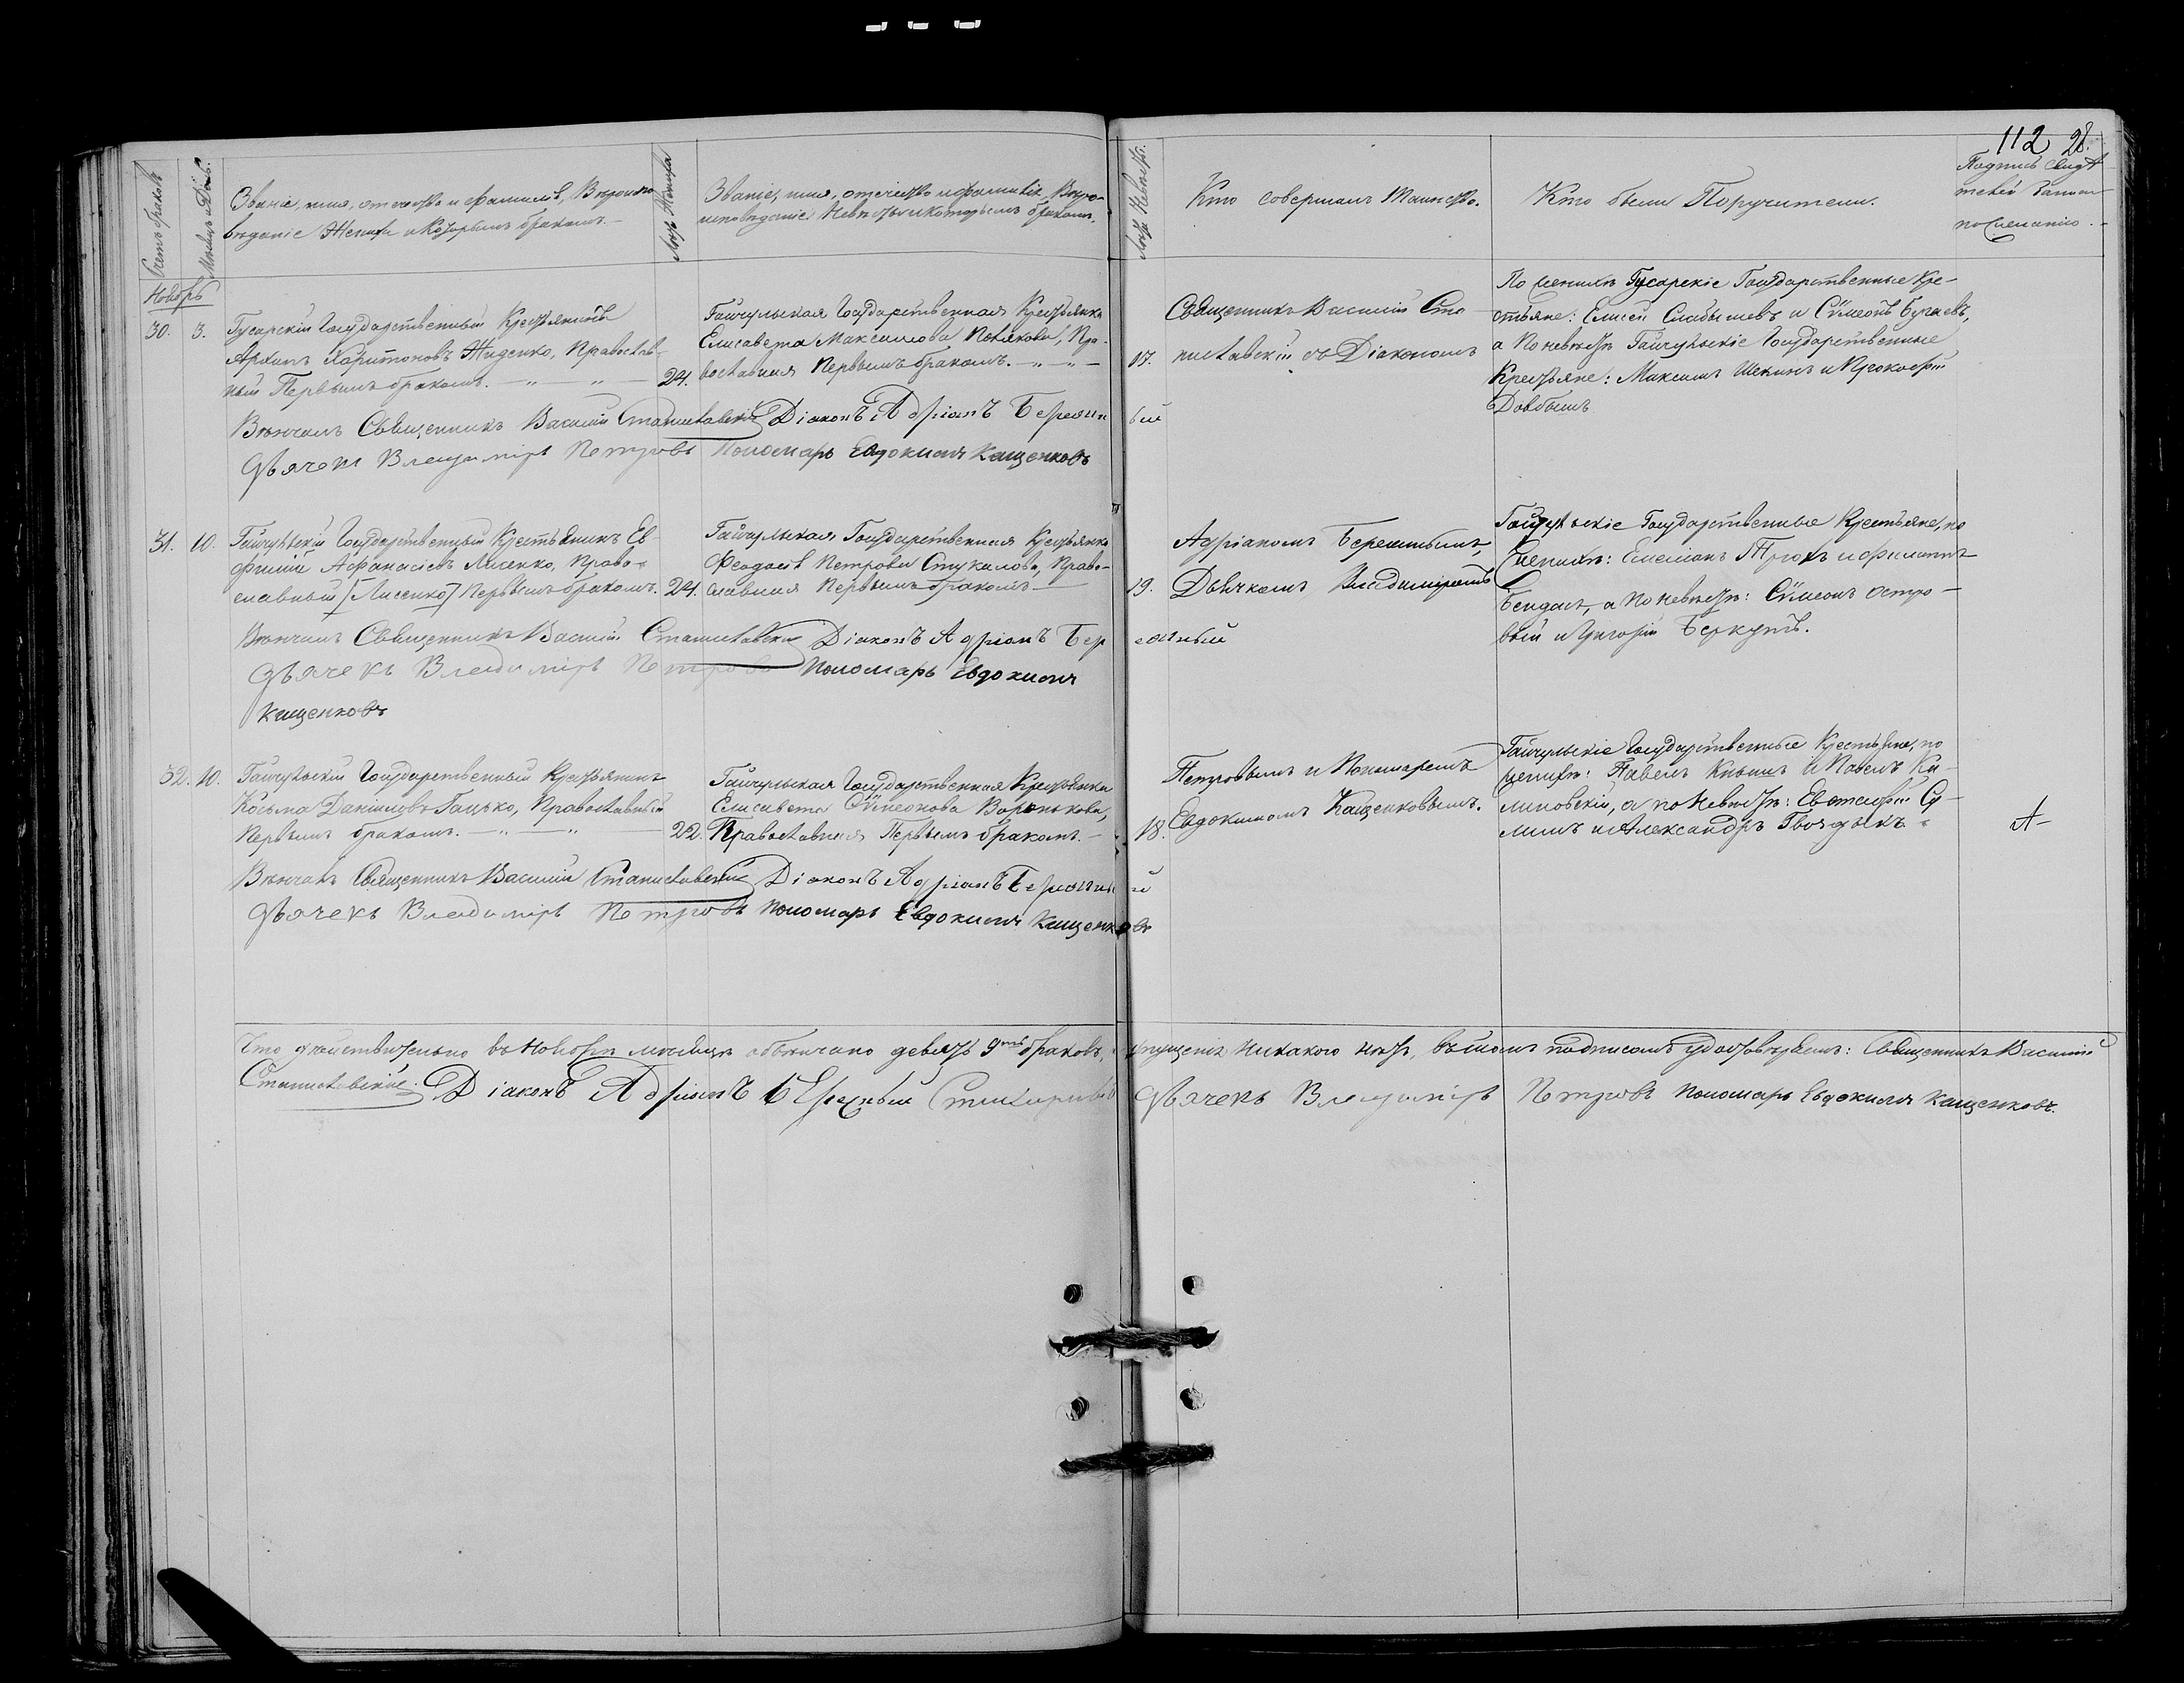 112 28.
Счетъ браковъ
Мѣсяцъ и День.
Званіе, имя, отчество и фамилія, Вѣроиспо
вѣданіе Жениха и Которымъ бракомъ.
Лѣта Жениха
Званіе, имя, отчество и фамилія, Вѣро-
исповѣданіе Невѣсты и которымъ бракомъ.
Лѣта Невѣсты.
Кто совершалъ Таинство.
Кто были Поручители.
Подпись свидѣ
телей записи
по желанію.
Ноябрь
30. 3.
Гусарскій Государственный Крестьянинъ
Архипъ Харитоновъ Жиденко, Православ-
ный Первымъ бракомъ.
24.
Гайчульская Государственная Крестьянка
Елисавета Максимова Полякова, Пра-
вославная Первымъ бракомъ.
17.
Священникъ Василій Ста
ниславскій съ Діакономъ
По женихѣ Гусарскіе Государственные Кре-
стьяне: Елисей Слабышевъ и Сѵмеонъ Бугаевъ,
а По невѣстѣ Гайчульскіе Государственные
Крестьяне: Максимъ Шекинъ и Прокофій
Довбышъ
Вѣнчалъ Священникъ Василій Станиславскій Діаконъ Адріанъ Бережн ый
Дьячекъ Владиміръ Петровъ Пономарь Евдокимъ Кащенковъ
31. 10.
Гайчульскій Государственный Крестьянинъ Ев-
фимій Афанасіевъ Лисенко, Право-
славный [Лисенко] Первымъ бракомъ.
24.
Гайчульская Государственная Крестьянка
Феодосія Петрова Стукалова, Право-
славная Первымъ бракомъ
19.
Адріаномъ Бережнымъ,
Дьячкомъ Владиміромъ
Гайчульскіе Государственные Крестьяне, по
женихѣ: Емеліанъ и Филиппъ
Бендасъ, а по невѣстѣ: Сѵмеонъ Остро-
вый и Григорій Беркутъ.
Вѣнчалъ Священникъ Василій Станиславскій Діаконъ Адріанъ Бер ежный
Дьячекъ Владиміръ Петровъ Пономарь Евдокимъ
Кащенковъ
32. 10.
Гайчульскій Государственный Крестьянинъ
Косьма Даніиловъ Гацько, Православный
Первымъ бракомъ.
22.
Гайчульская Государственная Крестьянка
Елисавета Сѵмеонова Воронькова,
Православная Первымъ бракомъ.
18.
Петровымъ и Пономаремъ
Евдокимомъ Кащенковымъ.
Гайчульскіе Государственные Крестьяне, по
женихѣ: Павелъ Кнышъ и Павелъ Ка-
линовскій, а по Невѣстѣ: Евстафій Су-
лимъ и Александръ Гвоздыкъ
Вѣнчалъ Священникъ Василій Станиславскій Діаконъ Адріанъ Бережны й
Дьячекъ Владиміръ Петровъ Пономарь Евдокимъ Кащенковъ
Что дѣйствительно въ Ноябрѣ мѣсяцѣ обвѣнчано девять 9ть браковъ, и упущенія никакого нѣтъ, въ томъ подписомъ удостовѣряемъ: Священникъ Василій
Станиславскій. Діаконъ Адріанъ Бережный Дьячекъ Владиміръ Петровъ Пономарь Евдокимъ Кащенковъ.